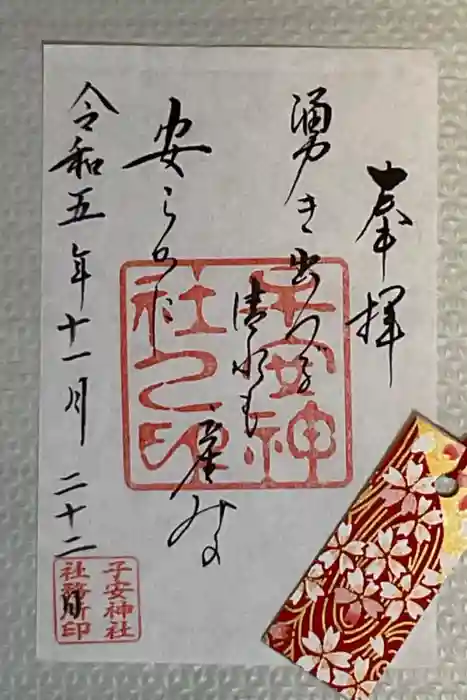 奉拝
湧き出づる
清水も
産みの
安らけし
令和五年十一月二十二日
子安神社之印
子安神社
社務所印